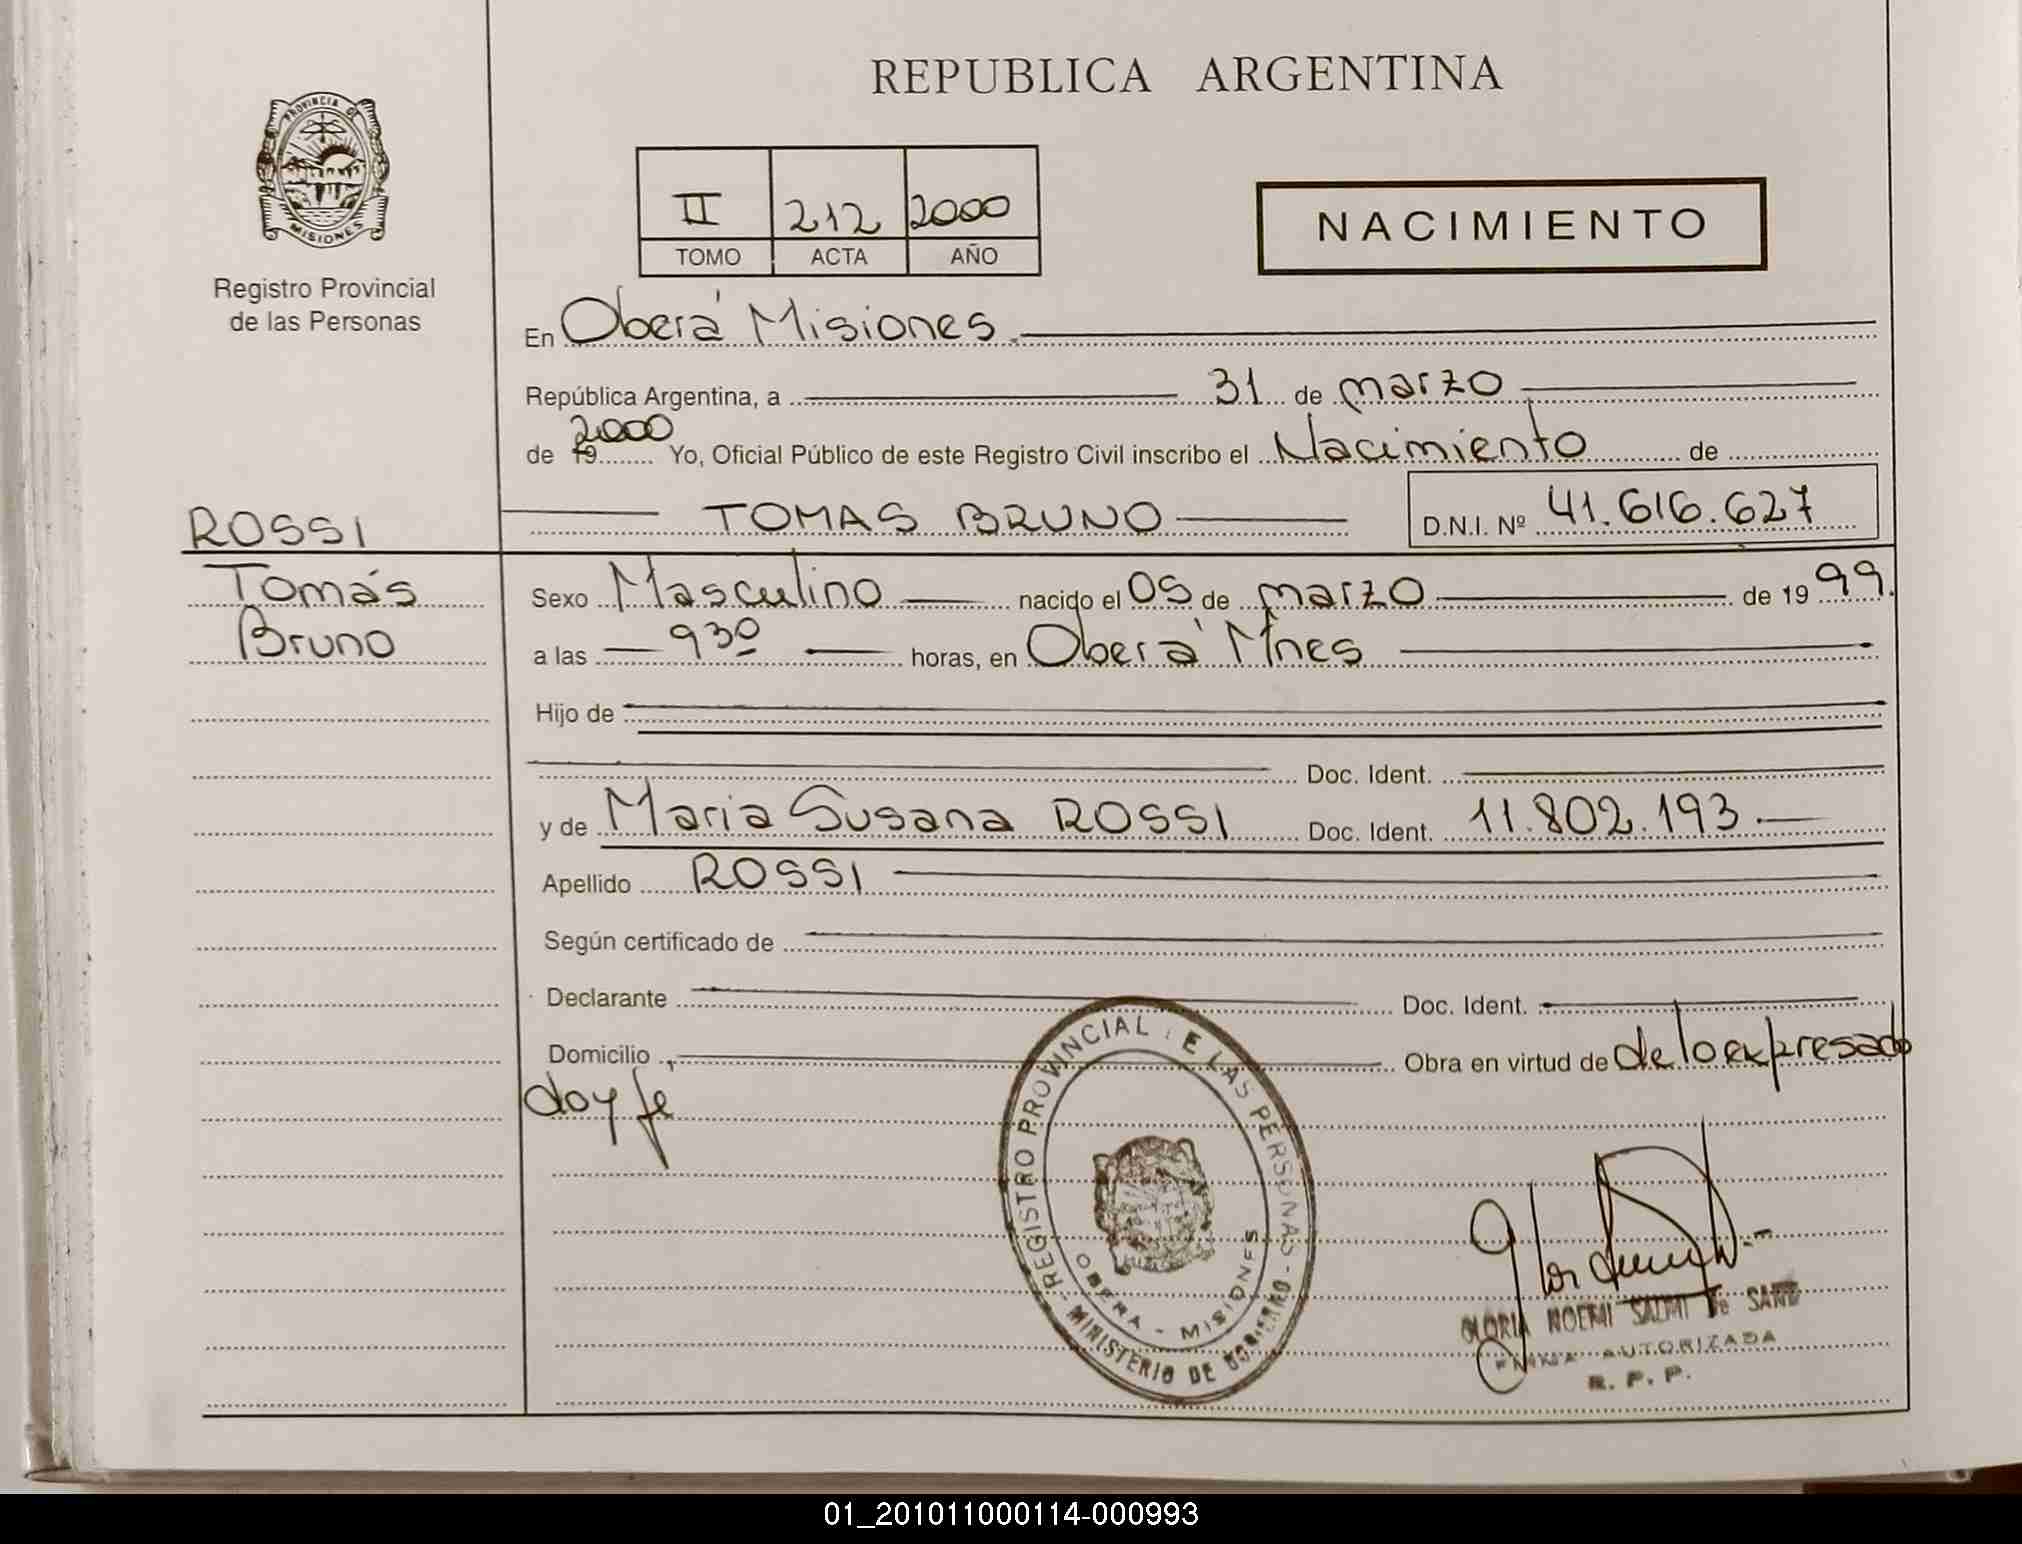 REPUBLICA ARGENTINA
PROVINCIA DE
MISIONES
Registro Provincial
de las Personas
II 212 2000
TOMO ACTA AÑO
NACIMIENTO
En Oberá Misiones.
República Argentina, a 31 de marzo
de 19 2000 Yo, Oficial Público de este Registro Civil inscribo el Nacimiento de
TOMAS BRUNO D.N.I. Nº 41.616.627
ROSSI
Tomás
Bruno
Sexo Masculino nacido el 05 de marzo de 1999.
a las 930 horas, en Oberá Mnes
Hijo de
Doc. Ident.
y de Maria Susana ROSSI Doc. Ident. 11.802.193.
Apellido ROSSI
Según certificado de
Declarante Doc. Ident.
Domicilio Obra en virtud de de lo expresado
doy fé
REGISTRO PROVINCIAL DE LAS PERSONAS
OBERA - MISIONES
MINISTERIO DE GOBIERNO
GLORIA NOEMI SALMI de
FIRMA AUTORIZADA
R. P. P.
01_201011000114-000993